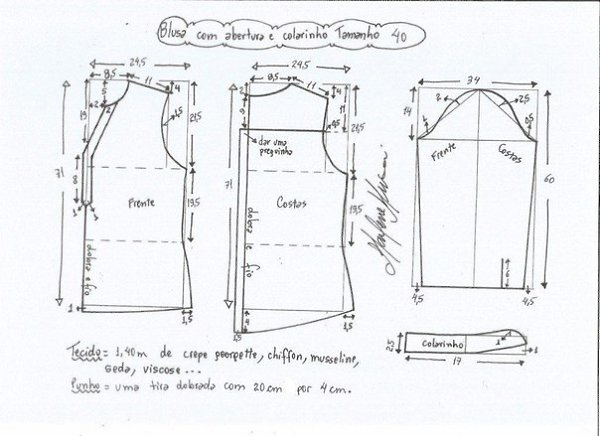 Blusa com abertura e colarinho Tamanho 40
24,5
8,5
11
4
5
2
2
19
4,5
21,5
8
71
1
Frente
19,5
dobra e fio
1
1,5
24,5
8,5
11
4
2
9
11
0,5
21,5
dar uma preguinha
71
Costas
19,5
dobra e fio
4
1,5
1,5
34
14
2
2,5
1
0,5
Frente
Costas
60
6
4,5
4,5
2,5
colarinho
1
1
17
Tecido = 1,40m de crepe georgette, chiffon, musseline,
seda, viscose ...
Punho = uma tira dobrada com 20cm por 4cm.